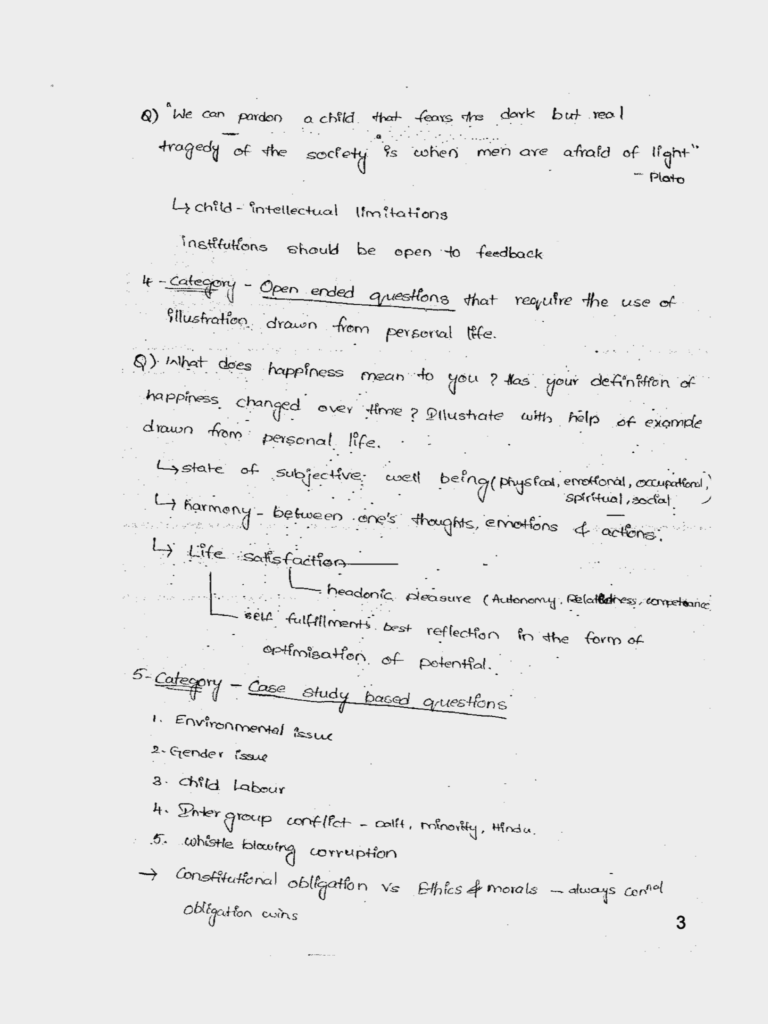 Q) "We can pardon a child that fears the dark but real
tragedy of the society is when men are afraid of light"
- Plato
↳ child - intellectual limitations
institutions should be open to feedback
4 - Category - Open ended questions that require the use of
illustration drawn from personal life.
Q) What does happiness mean to you? Has your definition of
happiness changed over time? Illustrate with help of example
drawn from personal life.
↳ state of subjective well being (physical, emotional, occupational,
spiritual, social)
↳ harmony - between one's thoughts, emotions & actions.
↳ Life satisfaction
headonic pleasure (Autonomy, Relatedness, competance
self fulfillments best reflection in the form of
optimisation of potential.
5 - Category - Case study based questions
1. Environmental issue
2. Gender issue
3. Child Labour
4. Inter group conflict - dalit, minority, Hindu.
5. whistle blowing corruption
→ Constitutional obligation vs Ethics & morals - always
obligation wins
3